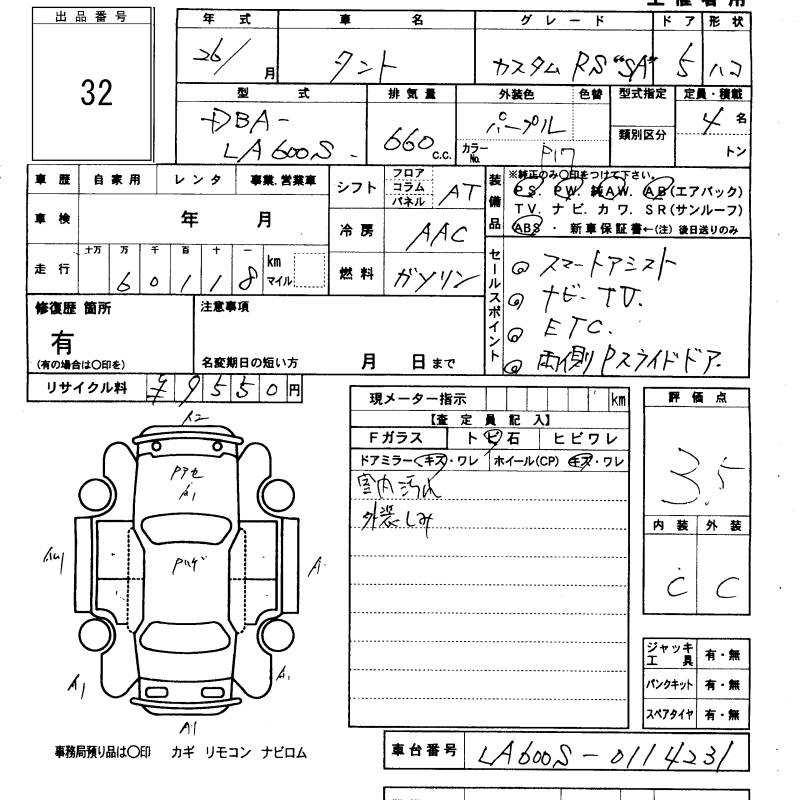 出品番号
32
年式 車名 グレード ドア 形状
26/ 月 タント カスタム RS "SA" 5 ハコ
型式 排気量 外装色 色替 型式指定 定員・積載
DBA-
LA600S 660 c.c. パープル 類別区分 4 名
カラーNo. P17 トン
車歴 自家用 レンタ 事業.営業車
シフト フロア コラム パネル AT
車検 年 月
冷房 AAC
走行 十万 万 千 百 十 一
6 0 1 1 8 km マイル
燃料 ガソリン
装備品 ※純正のみ〇印をつけて下さい。
PS. PW. 純AW. AB(エアバック)
TV. ナビ. カワ. SR(サンルーフ)
ABS ・ 新車保証書←(注) 後日送りのみ
セールスポイント
スマートアシスト
ナビ・TV.
ETC.
両側Pスライドドア.
修復歴 箇所
有
(有の場合は〇印を)
注意事項
名変期日の短い方 月 日まで
リサイクル料 ¥9550円
現メーター指示 km
【査定員記入】
Fガラス ト ビ 石 ヒビワレ
ドアミラー(キズ・ワレ ホイール(CP) キズ・ワレ
室内汚れ
外装しみ
評価点
3.5
内装 外装
C C
ジャッキ工具 有・無
パンクキット 有・無
スペアタイヤ 有・無
A2
A1
A
A1
A1
A1
事務局預り品は〇印 カギ リモコン ナビロム
車台番号 LA600S-0114231